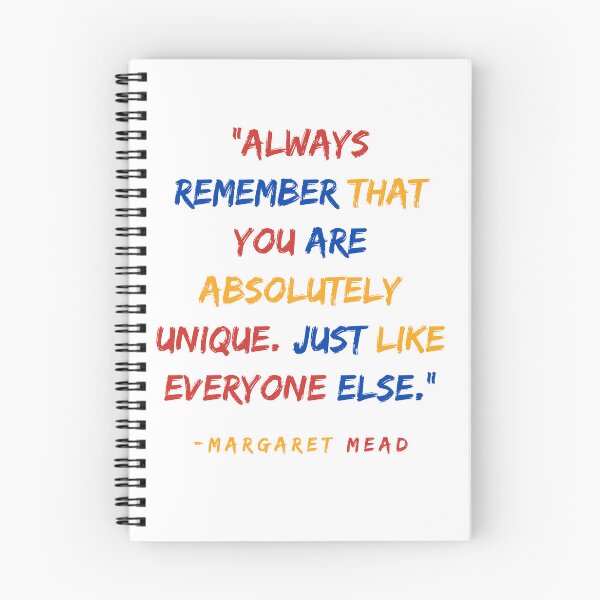 "ALWAYS
REMEMBER THAT
YOU ARE
ABSOLUTELY
UNIQUE. JUST LIKE
EVERYONE ELSE."
-MARGARET MEAD